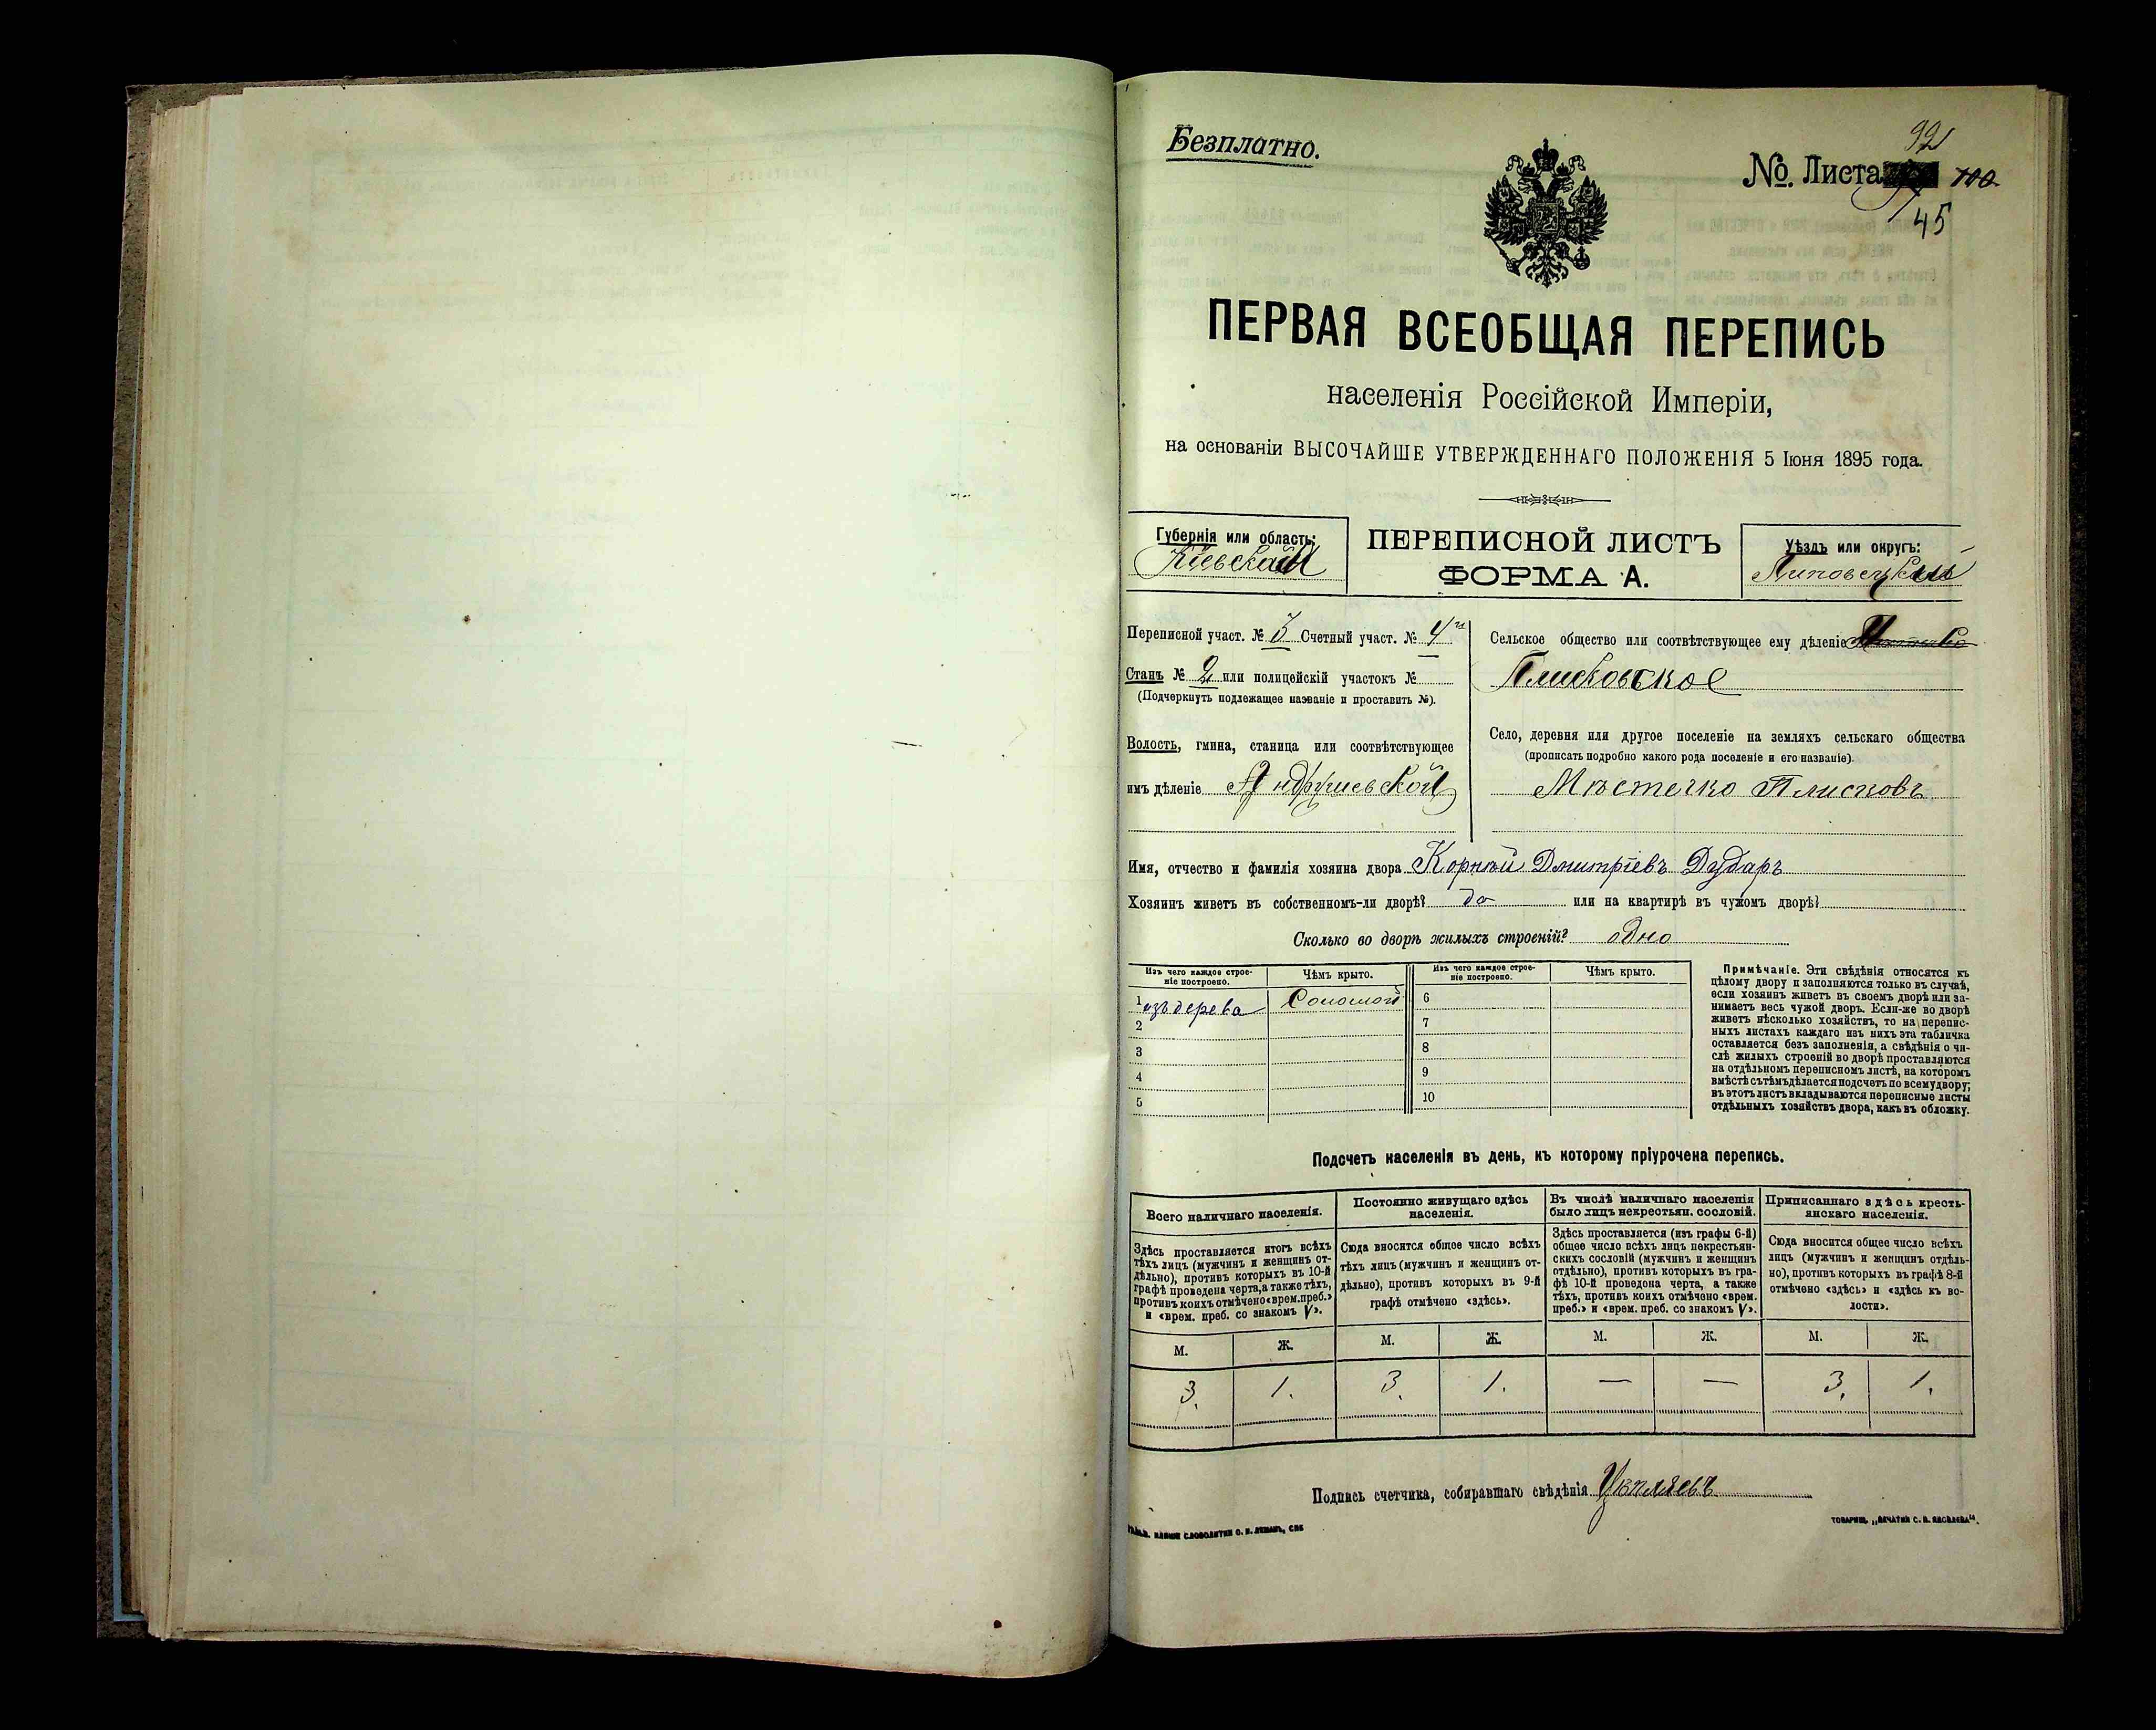 Безплатно.
92
№. Листа 100
45
ПЕРВАЯ ВСЕОБЩАЯ ПЕРЕПИСЬ
населенія Россійской Имперіи,
на основаніи ВЫСОЧАЙШЕ УТВЕРЖДЕННАГО ПОЛОЖЕНІЯ 5 Іюня 1895 года.
Губернія или область:
Кіевская
ПЕРЕПИСНОЙ ЛИСТЪ
ФОРМА А.
Уѣздъ или округъ:
Липовецкій
Переписной участ. № 3 Счетный участ. № 4й
Станъ № 2 или полицейскій участокъ №
(Подчеркнуть подлежащее названіе и проставить №).
Волость, гмина, станица или соотвѣтствующее
имъ дѣленіе Андрушевской
Сельское общество или соотвѣтствующее ему дѣленіе
Плисковское
Село, деревня или другое поселеніе на земляхъ сельскаго общества
(прописать подробно какого рода поселеніе и его названіе).
Мѣстечко Плисковъ
Имя, отчество и фамилія хозяина двора Корнѣй Дмитріевъ Дударъ
Хозяинъ живетъ въ собственномъ-ли дворѣ? да или на квартирѣ въ чужомъ дворѣ?
Сколько во дворѣ жилыхъ строеній? одно
Изъ чего каждое строе-
ніе построено.
Чѣмъ крыто.
1 изъ дерева Соломой
2
3
4
5
Изъ чего каждое строе-
ніе построено.
Чѣмъ крыто.
6
7
8
9
10
Примѣчаніе. Эти свѣдѣнія относятся къ
цѣлому двору и заполняются только въ случаѣ,
если хозяинъ живетъ въ своемъ дворѣ или за-
нимаетъ весь чужой дворъ. Если-же во дворѣ
живетъ нѣсколько хозяйствъ, то на перепис-
ныхъ листахъ каждаго изъ нихъ эта табличка
оставляется безъ заполненія, а свѣдѣнія о чи-
слѣ жилыхъ строеній во дворѣ проставляются
на отдѣльномъ переписномъ листѣ, на которомъ
вмѣстѣ съ тѣмъ дѣлается подсчетъ по всему двору;
въ этотъ листъ вкладываются переписные листы
отдѣльныхъ хозяйствъ двора, какъ въ обложку.
Подсчетъ населенія въ день, къ которому пріурочена перепись.
Всего наличнаго населенія.
Здѣсь проставляется итогъ всѣхъ
тѣхъ лицъ (мужчинъ и женщинъ от-
дѣльно), противъ которыхъ въ 10-й
графѣ проведена черта, а также тѣхъ,
противъ коихъ отмѣчено «врем. преб.»
и «врем. преб. со знакомъ V».
М. Ж.
3. 1.
Постоянно живущаго здѣсь
населенія.
Сюда вносится общее число всѣхъ
тѣхъ лицъ (мужчинъ и женщинъ от-
дѣльно), противъ которыхъ въ 9-й
графѣ отмѣчено «здѣсь».
М. Ж.
3. 1.
Въ числѣ наличнаго населенія
было лицъ некрестьян. сословій.
Здѣсь проставляется (изъ графы 6-й)
общее число всѣхъ лицъ некрестьян-
скихъ сословій (мужчинъ и женщинъ
отдѣльно), противъ которыхъ въ гра-
фѣ 10-й проведена черта, а также
тѣхъ, противъ коихъ отмѣчено «врем.
преб.» и «врем. преб. со знакомъ V».
М. Ж.
— —
Приписаннаго здѣсь кресть-
янскаго населенія.
Сюда вносится общее число всѣхъ
лицъ (мужчинъ и женщинъ отдѣль-
но), противъ которыхъ въ графѣ 8-й
отмѣчено «здѣсь» и «здѣсь къ во-
лости».
М. Ж.
3. 1.
Подпись счетчика, собиравшаго свѣдѣнія
СЛОВОЛИТНИ О. И. ЛЕМАНЪ, СПБ
ТОВАРИЩ. „ПЕЧАТНЯ С. П. ЯКОВЛЕВА“.